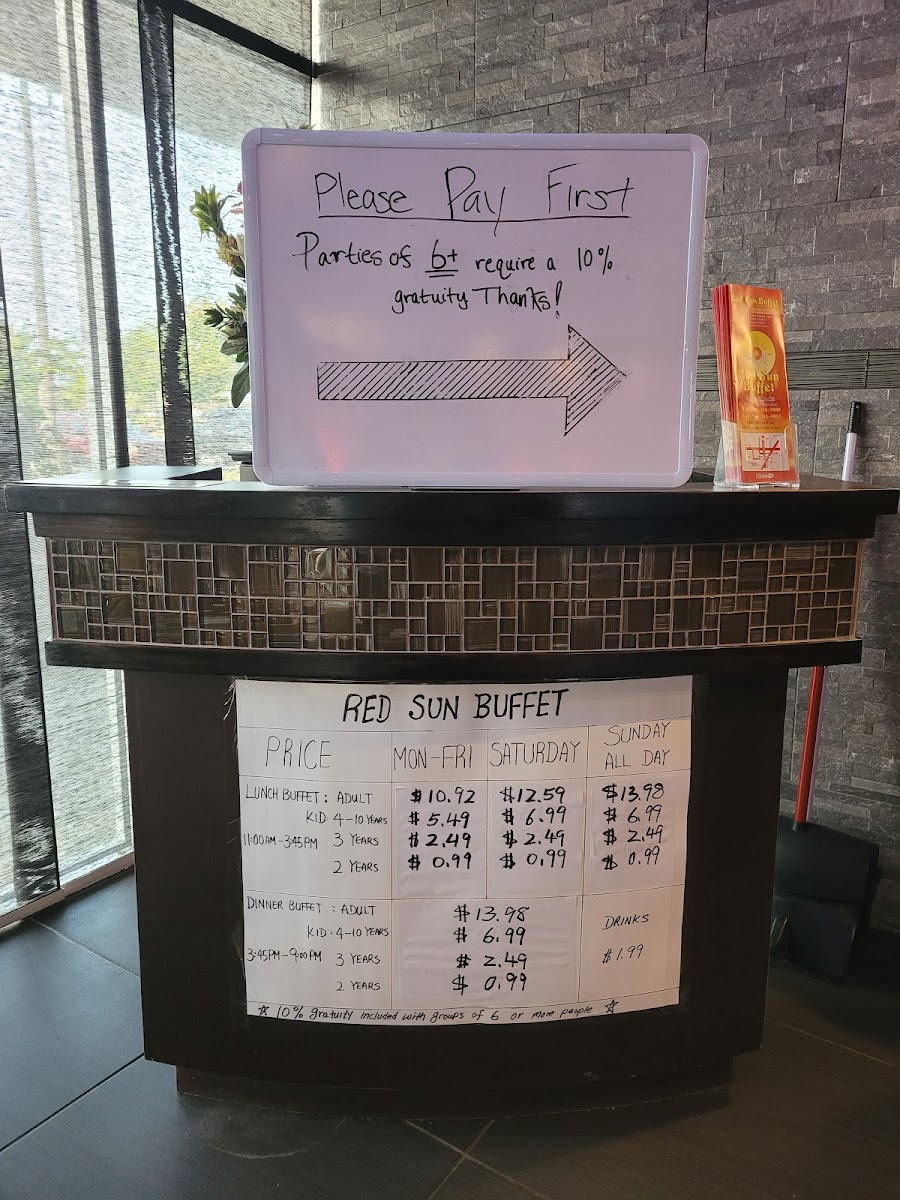 Please Pay First
Parties of 6+ require a 10%
gratuity Thanks!
Sun Buffet
Sun
Buffet
RED SUN BUFFET
PRICE MON-FRI SATURDAY SUNDAY ALL DAY
LUNCH BUFFET: ADULT $10.92 $12.59 $13.98
KID 4-10 YEARS $5.49 $6.99 $6.99
11:00AM-3:45PM 3 YEARS $2.49 $2.49 $2.49
2 YEARS $0.99 $0.99 $0.99
DINNER BUFFET: ADULT $13.98 DRINKS
KID: 4-10 YEARS $6.99
3:45PM-9:00PM 3 YEARS $2.49 $1.99
2 YEARS $0.99
☆ 10% gratuity included with groups of 6 or more people ☆